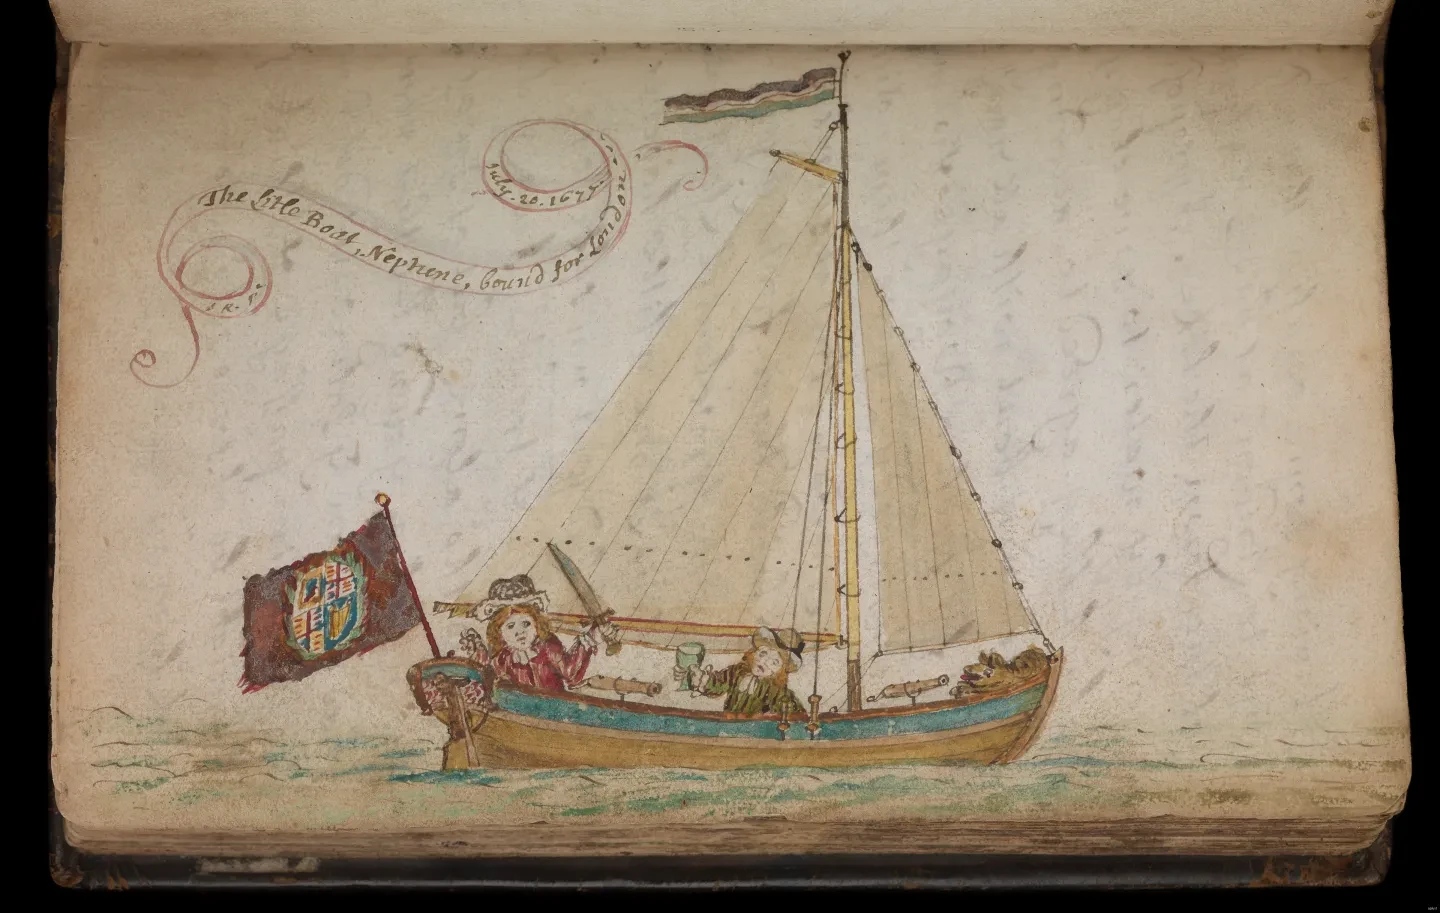 The little Boat, Neptune, bound for London
July. 20. 1675.